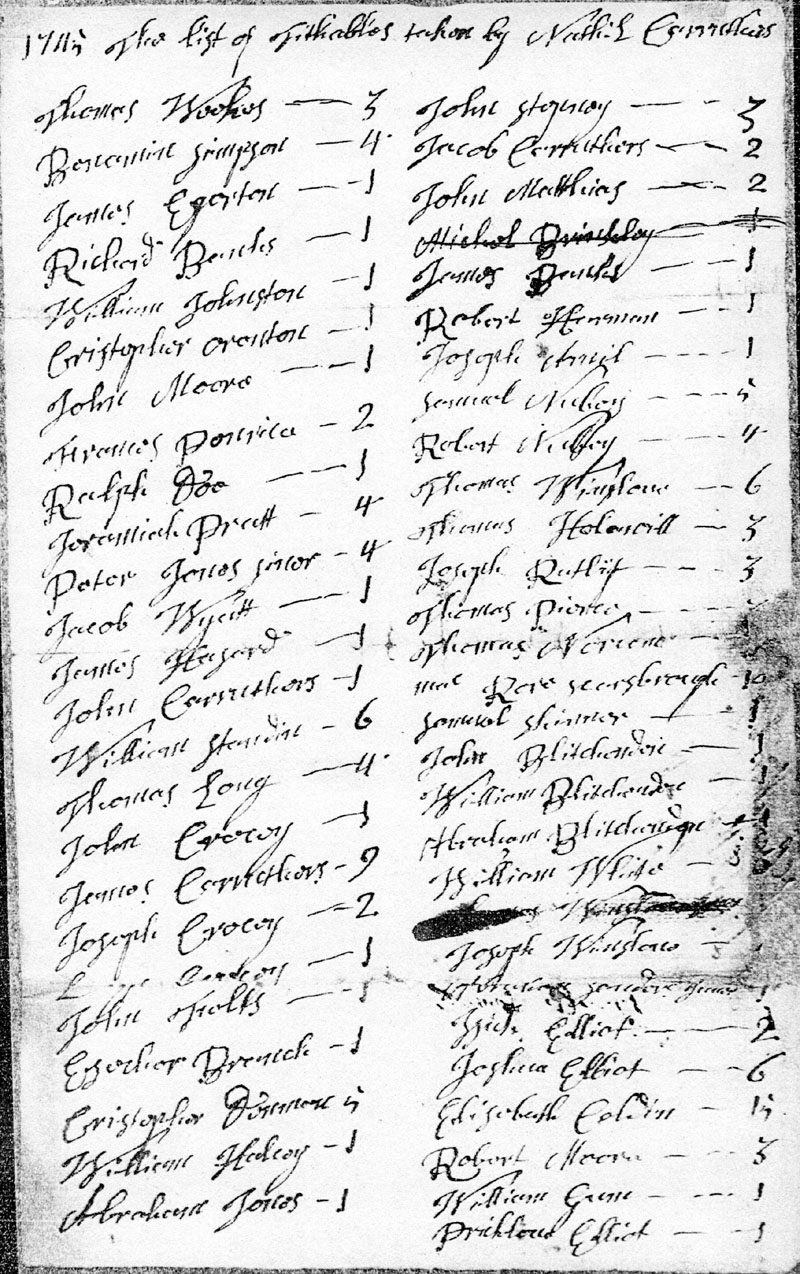 1745 The list of Tithables taken by Nathil Carruthers
Thomas Weekes — 3
Benjamin Simpson — 4
James Egerton — 1
Richard Banks — 1
William Johnston — 1
Cristopher — 1
John Moore — 1
Francis — 2
Ralph Doe — 1
Jeremiah Pratt — 4
Peter Jones — 4
Jacob Wyatt — 1
James Hazard — 1
John Carruthers — 1
William Standin — 6
Thomas Long — 4
John Crecey — 1
James Carruthers — 9
Joseph Crecey — 2
— 1
John — 1
Ezecher Branch — 1
Cristopher 5
William — 1
Abraham Jones — 1
John Stepney — 3
Jacob Carruthers — 2
John Matthias — 2
Michel Brinkley — 1
James Banks — 1
Robert Harman — 1
Joseph — 1
Samuel Nubey — 5
Robert Nubey — 4
Thomas Winslow — 6
Thomas Holowill — 3
Joseph Ratlif — 3
Thomas Pierce
Thomas
Rare Scarsbrough — 10
Samuel Skinner — 1
John Blitchenden — 1
William Blitchenden — 1
Abraham Blitchenden
William White
Joseph Winslow
Elliot — 2
Joshua Elliot — 6
Elisebeth — 15
Robert Moore — 3
William Gum — 1
Elliot — 1